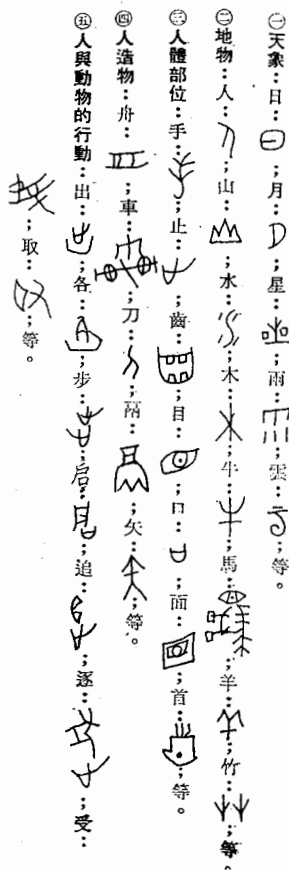 ㊀天象：日：；月：；星：；雨：；雲：；等。
㊁地物：人：；山：；水：；木：；牛：；馬：；羊：；竹：；等。
㊂人體部位：手：；止：；齒：；目：；口：；面：；首：；等。
㊃人造物：舟：；車：；刀：；鬲：；矢：；等。
㊄人與動物的行動：出：；各：；步：；启：；追：；逐：；受：
；取：；等。